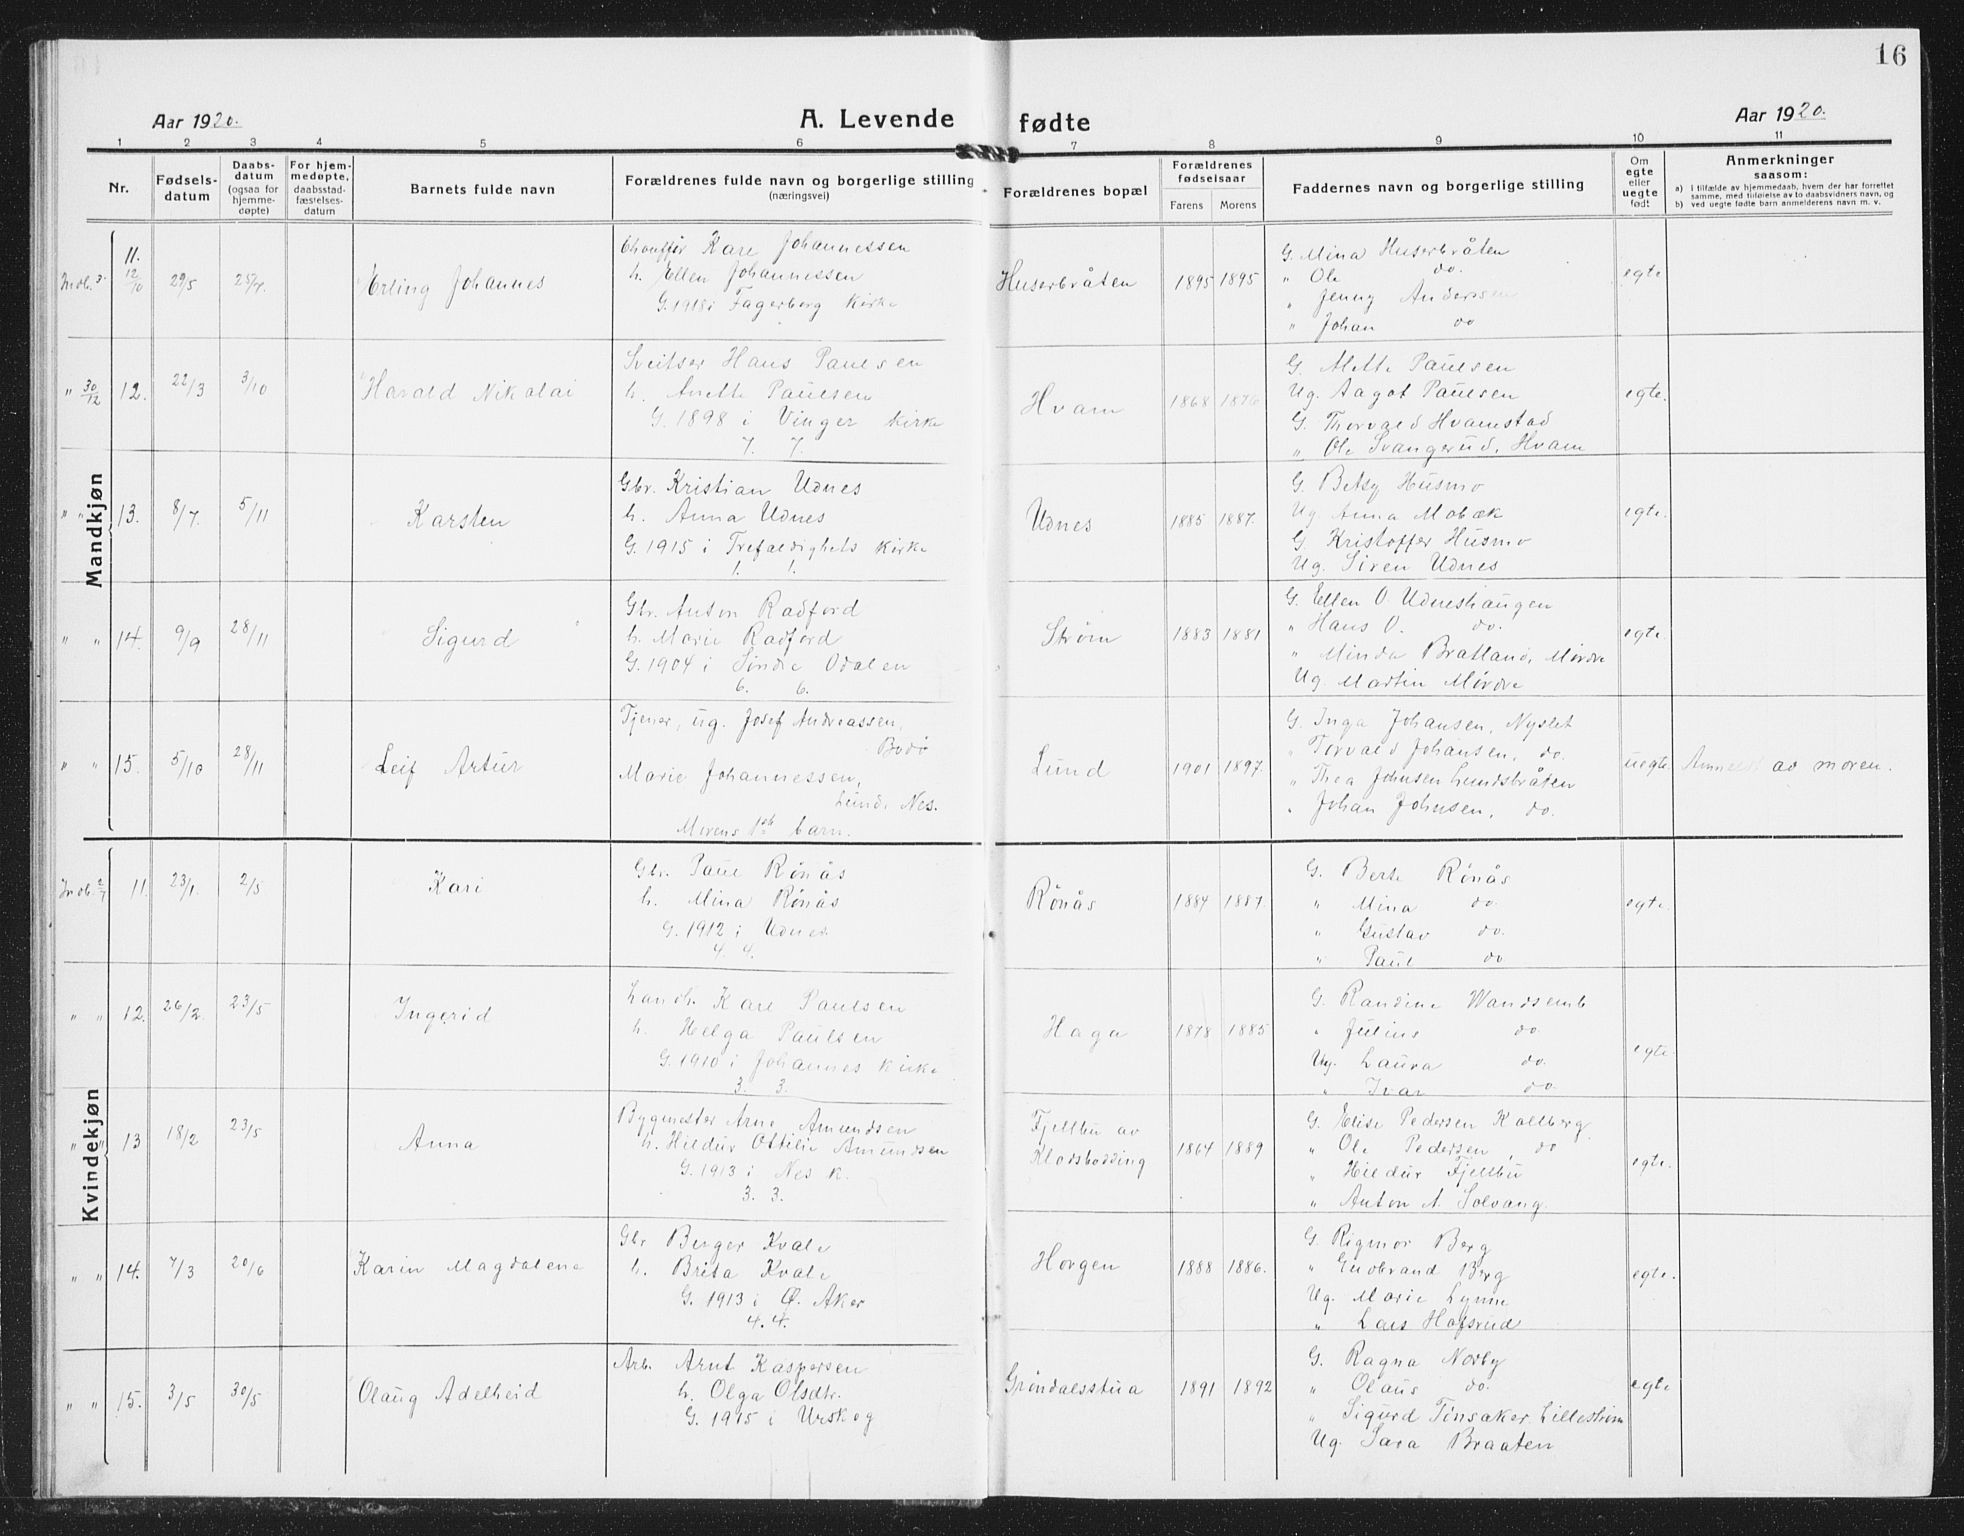 16
Aar 1920.
A. Levende fødte
Aar 1920.
1 2 3 4 5 6 7 8 9 10 11
Nr.
Fødsels-
datum
Daabs-
datum
(ogsaa for
hjemme-
døpte)
For hjem-
medøpte,
daabsstad-
fæstelses-
datum
Barnets fulde navn
Forældrenes fulde navn og borgerlige stilling
(næringsvei)
Forældrenes bopæl
Forældrenes
fødselsaar
Farens Morens
Faddernes navn og borgerlige stilling
Om
egte
eller
uegte
født
Anmerkninger
saasom:
a) i tilfælde av hjemmedaab, hvem der har forrettet
samme, med tilføielse av to daabsvidners navn, og
b) ved uegte fødte barn anmelderens navn m. v.
Mandkjøn
11.
12/10
29/5
25/7.
Erling Johannes
Chauffør Karl Johannessen
h. Ellen Johannessen
G. 1918 i Fagerborg kirke
Huserbråten
1895 1895
G. Mina Huserbråten
" Ole do.
" Jenny Andersen
" Johan do
egte
" 30/12
12.
22/3
3/10
Harald Nikolai
Sveitser Hans Paulsen
h. Anette Paulsen
G. 1898 i Vinger kirke
7. 7.
Hvam
1868 1876
G. Mette Paulsen
Ug. Aagot Paulsen
G. Thorvald Hvamstad
" Ole Svangerud, Hvam
egte.
" "
13.
8/7.
5/11
Karsten
Gbr. Kristian Udnes
h. Anna Udnes
G. 1915 i Trefoldighets kirke
1. 1.
Udnes
1885 1887.
G. Betsy Husmo
Ug Anna Mobæk
G. Kristoffer Husmo
Ug. Siren Udnes
egte.
" "
14.
9/9
28/11
Sigurd
Gbr. Anton Radford
h. Marie Radford
G. 1904 i Søndre Odalen
6. 6.
Strøm
1883 1881
G. Ellen O. Udneshaugen
" Hans O. do.
" Minda Bratland, Mørdre
Ug. Martin Mørdre
egte.
" "
15.
5/10
28/11
Leif Artur
Tjener, ug. Josef Andreassen,
Bodø
Marie Johannessen,
Lund, Nes.
Morens 1ste barn.
Lund
1901 1897.
G. Inga Johansen, Nyslet
" Torvald Johansen, do.
" Thea Johnsen Lundsbråten
" Johan Johnsen, do.
uegte.
Anmeldt av moren.
Kvindekjøn
11.
23/1.
2/5
Kari
Gbr. Paul Rønås
h. Mina Rønås
G. 1912 i Udnes
4. 4.
Rønås
1884 1887
G. Berte Rønås
" Mina do
" Gustav do.
" Paul do
egte.
" "
12.
26/2.
23/5
Ingerid
Landh. Karl Paulsen
h. Helga Paulsen
G. 1910 i Johannes kirke
3. 3.
Haga
1878 1885
G. Randine Wandsemb
" Julius do.
Ug. Laura do.
" Ivar do.
egte.
" "
13
18/2
23/5
Anna
Bygmester Arne Amundsen
h. Hildur Ottilie Amundsen
G. 1913 i Nes k.
3. 3.
Fjellbu av
Klodsbodding
1864 1889
G. Elise Pedersen Kollberg
" Ole Pedersen, do
" Hildur Fjellbu
" Anton A. Solvang.
egte.
" "
14.
7/3
20/6
Karin Magdalene
Gbr Berger Kvale
h. Brita Kvale
G. 1913 i Ø. Aker
4. 4.
Horgen
1888 1886.
G. Rigmor Berg
" Gudbrand Berg
Ug. Marie Lynne
" Lars Hofsrud
egte.
" "
15.
3/5
30/5
Olaug Adelheid
Arb. Arnt Kaspersen
h. Olga Olsdtr.
G. 1915 i Urskog
Grøndalsstua
1891 1892
G. Ragna Norby
" Olaus do.
" Sigurd Tønsaker, Lillestrøm
Ug. Sara Braaten
egte